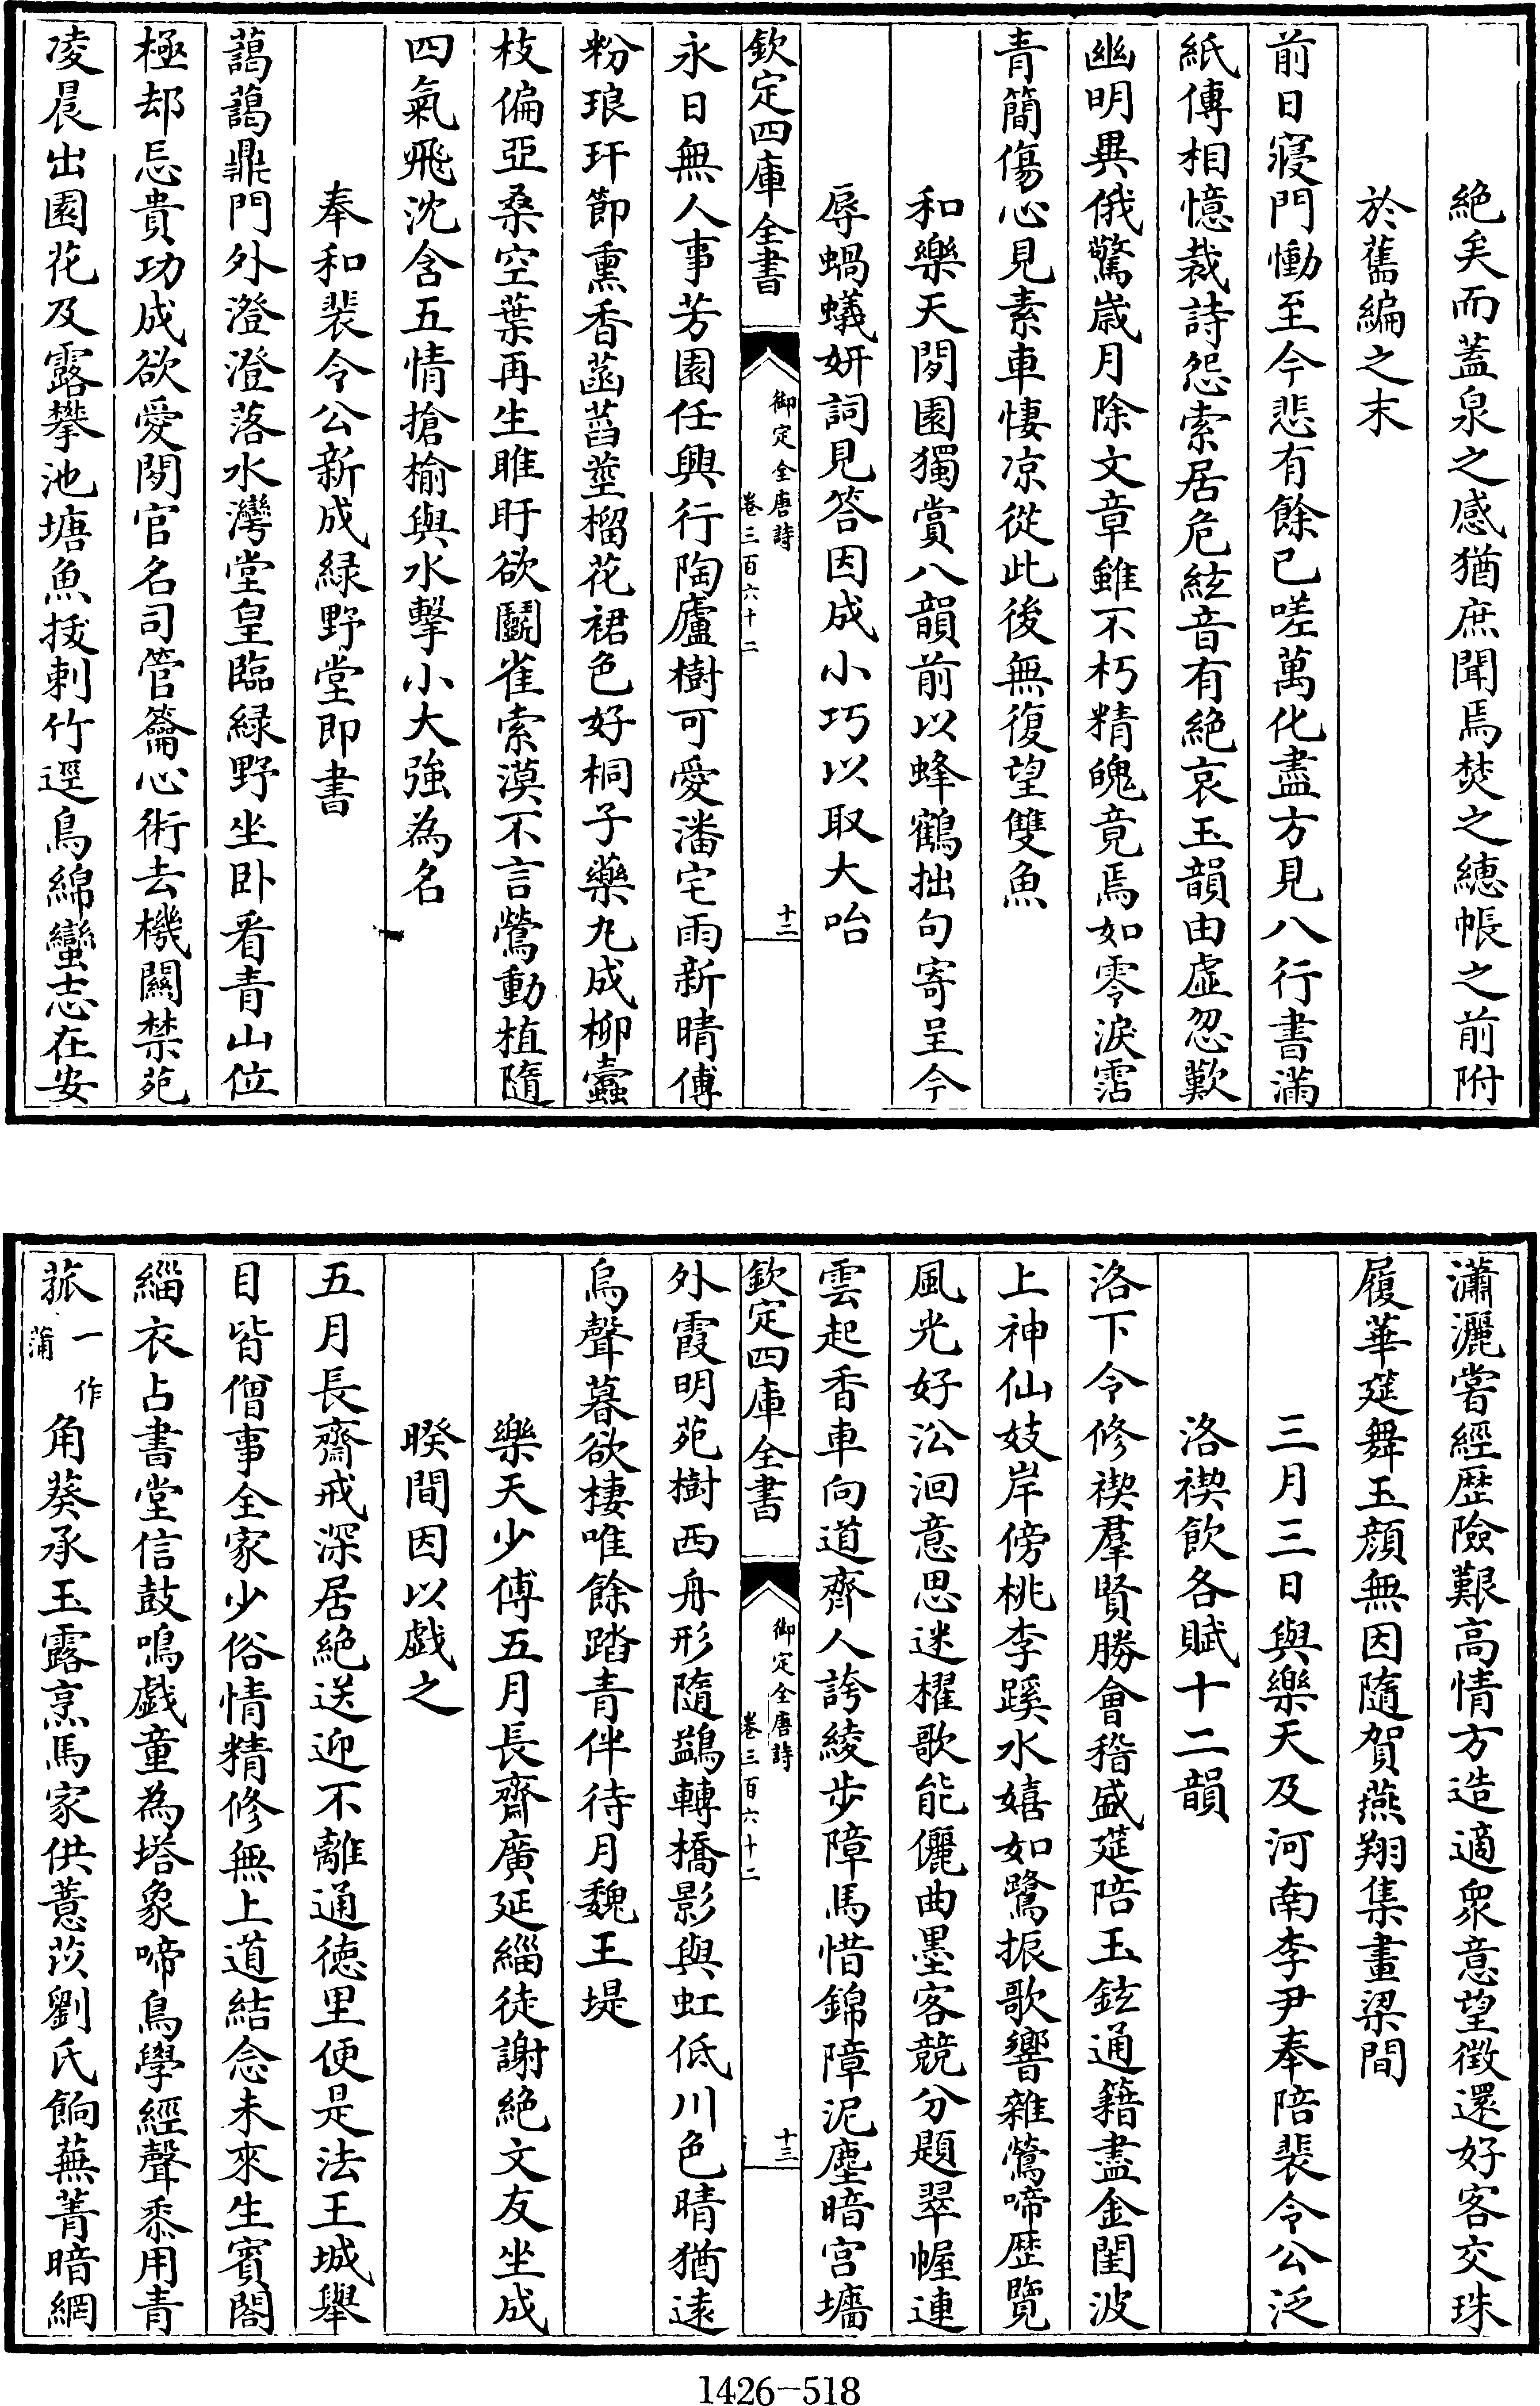 絶矣而蓋泉之感猶庶聞焉焚之繐帳之前附
於舊編之末
前日寢門慟至今悲有餘已嗟萬化盡方見八行書滿
紙傳相憶裁詩怨索居危絃音有絶哀玉韻由虚忽歎
幽明異俄驚嵗月除文章雖不朽精魄竟焉如零淚霑
青簡傷心見素車悽凉從此後無復望雙魚
和樂天閒園獨賞八韻前以蜂鶴拙句寄呈今
辱蝸蟻妍詞見答因成小巧以取大咍
欽定四庫全書
御定全唐詩
卷三百六十二
十二
永日無人事芳園任興行陶廬樹可愛潘宅雨新晴傅
粉琅玕節熏香菡萏莖榴花裙色好桐子藥丸成柳蠹
枝偏亞桑空葉再生睢盱欲鬬雀索漠不言鶯動植隨
四氣飛沈含五情搶榆與水擊小大強為名
奉和裴令公新成緑野堂即書
藹藹鼎門外澄澄落水灣堂皇臨緑野坐卧看青山位
極却忘貴功成欲愛閒官名司管籥心術去機關禁苑
凌晨出園花及露攀池塘魚撥剌竹逕鳥綿蠻志在安
瀟灑嘗經歴險艱高情方造適衆意望徴還好客交珠
履華筵舞玉顔無因隨賀燕翔集畫梁間
三月三日與樂天及河南李尹奉陪裴令公泛
洛禊飲各賦十二韻
洛下今修禊羣賢勝會稽盛筵陪玉鉉通籍盡金閨波
上神仙妓岸傍桃李蹊水嬉如鷺振歌響雜鶯啼歴覽
風光好沿洄意思迷櫂歌能儷曲墨客競分題翠幄連
雲起香車向道齊人誇綾步障馬惜錦障泥塵暗宫墻
欽定四庫全書
御定全唐詩
卷三百六十二
十三
外霞明苑樹西舟形隨鷁轉橋影與虹低川色晴猶逺
烏聲暮欲棲唯餘踏青伴待月魏王堤
樂天少傅五月長齋廣延緇徒謝絶文友坐成
暌間因以戯之
五月長齋戒深居絶送迎不離通徳里便是法王城舉
目皆僧事全家少俗情精修無上道結念未來生賓閣
緇衣占書堂信鼓鳴戯童為塔象啼鳥學經聲黍用青
菰一作蒲角葵承玉露烹馬家供薏苡劉氏餉蕪菁暗網
1426-518